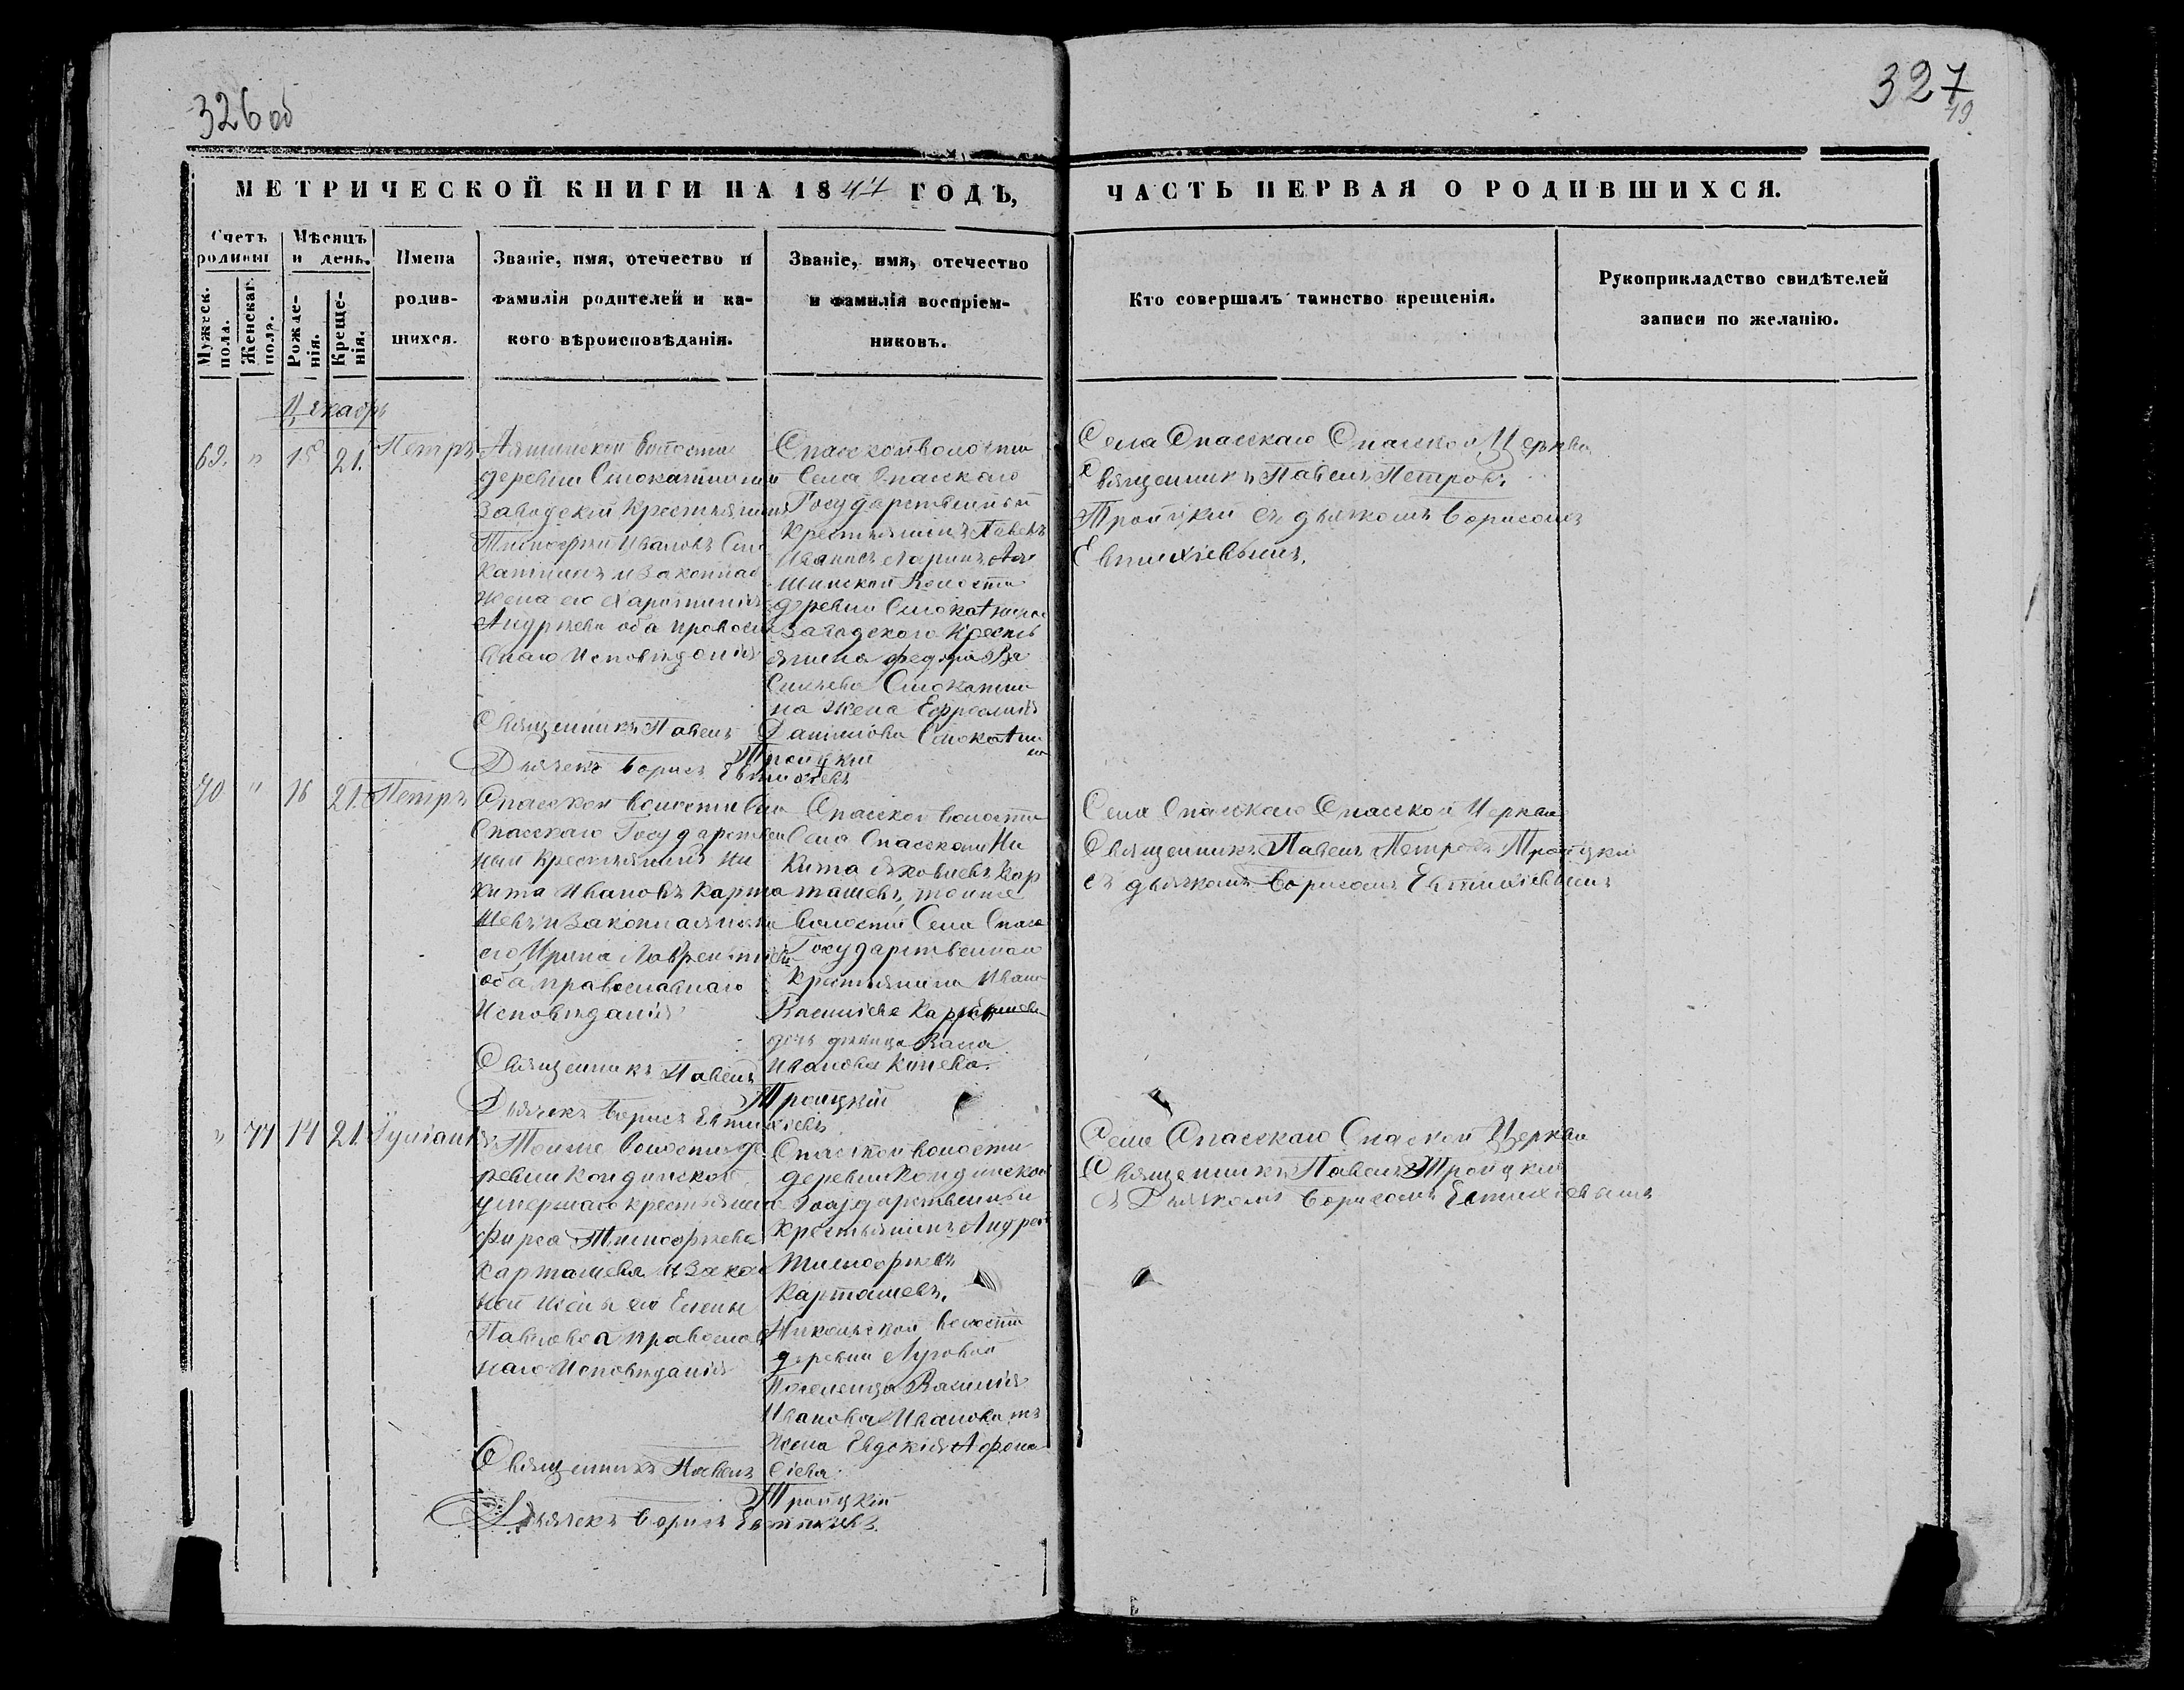 326 об
327
49
МЕТРИЧЕСКОЙ КНИГИ НА 1844 ГОДЪ,
ЧАСТЬ ПЕРВАЯ О РОДИВШИХСЯ.
Счетъ родивш
Мужеск. пола.
Женскаг пола.
Мѣсяцъ и день.
Рожде-нія.
Креще-нія.
Имена
родив-
шихся.
Званіе, имя, отечество и
фамилія родителей и ка-
кого вѣроисповѣданія.
Званіе, имя, отечество
и фамилія воспріем-
никовъ.
Кто совершалъ таинство крещенія.
Рукоприкладство свидѣтелей
записи по желанію.
Декабрь
69. " 15 21. Петръ
волости
деревни
Заводскій Крестьянинъ
Тимофей Ивановъ
и Законная
жена его Харитинія
Андреева оба православ
наго Исповѣданія
Священникъ Павелъ Троицкій
Дьячекъ Борисъ Евтихіевъ
Спасской волости
Села Спасскаго
Государственный
Крестьянинъ Павелъ
шинской Волости
деревни
Заводскаго Кресть
янина Федора Ва
сильева
на жена
Данилова
Села Спасскаго Спасской Церкви
Священникъ Павелъ Петровъ
Троицкій съ дьячкомъ Борисомъ
Евтихіевымъ.
70 " 16 21. Петръ
Спасской волости Села
Спасскаго Государствен
ный Крестьянинъ Ни
кита Ивановъ Карта
шевъ и Законная жена
его Ирина Лаврентьева
оба православнаго
Исповѣданія
Священникъ Павелъ Троицкій
Дьячекъ Борисъ Евтихіевъ
Спасской волости
Села Спасскаго Ни
кита Яковлевъ Кар
ташевъ, тоиже
волости Села Спаск
Государственнаго
Крестьянина Ивана
Васильева
Иванова
Села Спасскаго Спасской Церкви
Священникъ Павелъ Петровъ Троицкій
съ дьячкомъ Борисомъ Евтихіевымъ
" 77 14 21. Іуліанія
Тоиже Волости де
ревни Кондинской
умершаго крестьянина
Фирса Тимофѣева
Карташева и Закон
ной жены его Елены
Павловой православ
наго Исповѣданія
Священникъ Павелъ Троицкій
Дьячекъ Борисъ Евтихіевъ.
Спасской волости
деревни Кондинской
Государственный
Крестьянинъ Андрей
Тимофѣевъ
Карташевъ.
Никольской волости
деревни Луговой
Поселенца Василія
Иванова
жена Евдокія Афона
сіева.
Села Спасскаго Спаской Церкви
Священникъ Павелъ Троицкій
съ Дьячкомъ Борисомъ Евтихіевымъ